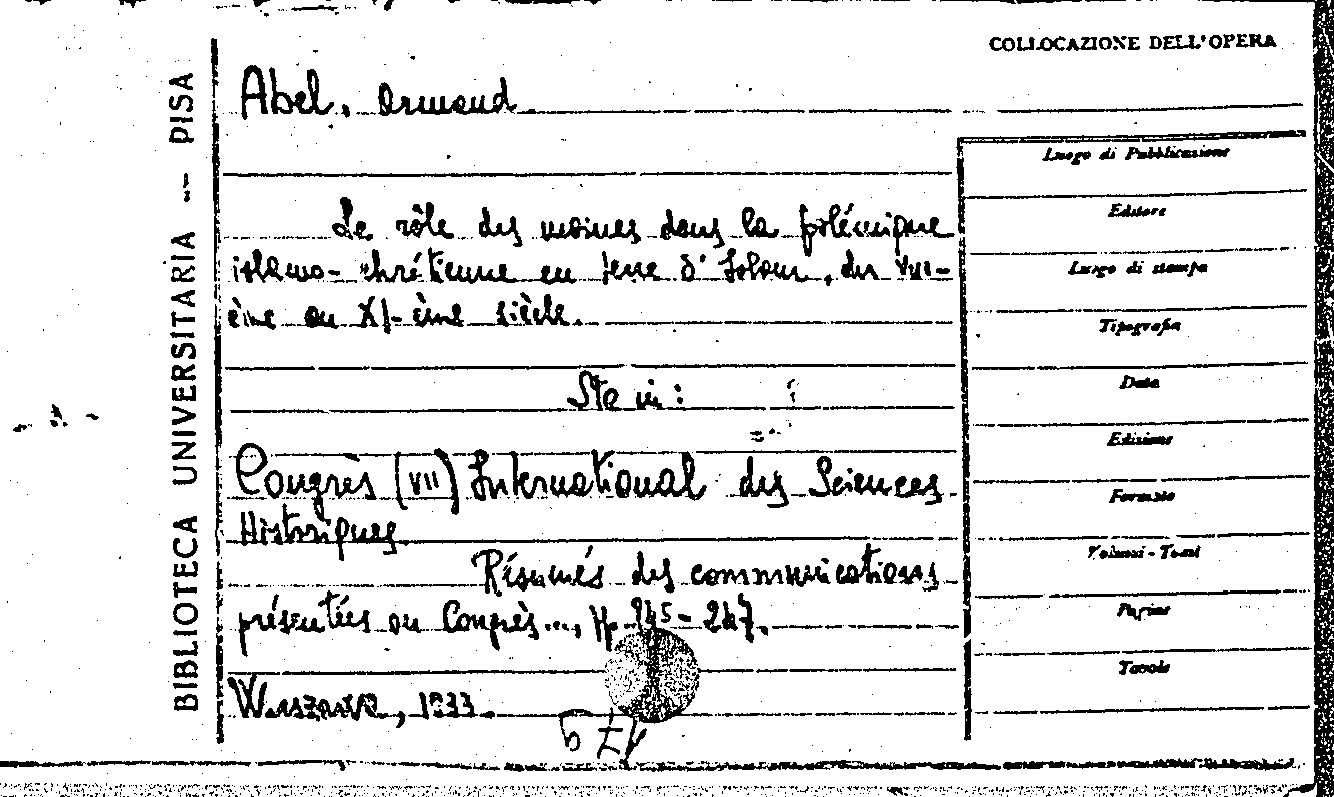 COLLOCAZIONE DELL'OPERA
BIBLIOTECA UNIVERSITARIA -- PISA
Abel, Armand
Le rôle des moines dans la polémique
islamo-chrétienne en terre d'Islam, du VIII-
ème au XI-ème siècle.
Sta in:
Congrès (VII) International des Sciences
Historiques.
Résumés des communications
présentées au Congrès..., pp. 245-247.
Warszawa, 1933.
Luogo di Pubblicazione
Editore
Luogo di stampa
Tipografia
Data
Edizione
Formato
Volumi - Tomi
Pagine
Tavole